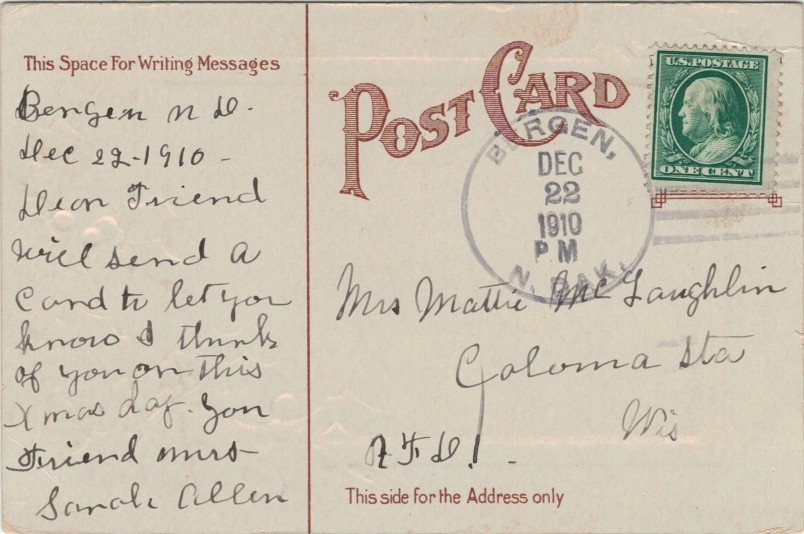 This Space For Writing Messages
Bergen N D.
Dec 22-1910-
Dear Friend
Will send A
Card to let you
know I think
of you on this
Xmas day. your
Friend Mrs
Sarah Allen
POST CARD
U.S. POSTAGE
ONE CENT
BERGEN,
DEC
22
1910
P M
N. DAK.
Mrs Mattie McLaughlin
Coloma Sta
Wis
R F D. 1-
This side for the Address only